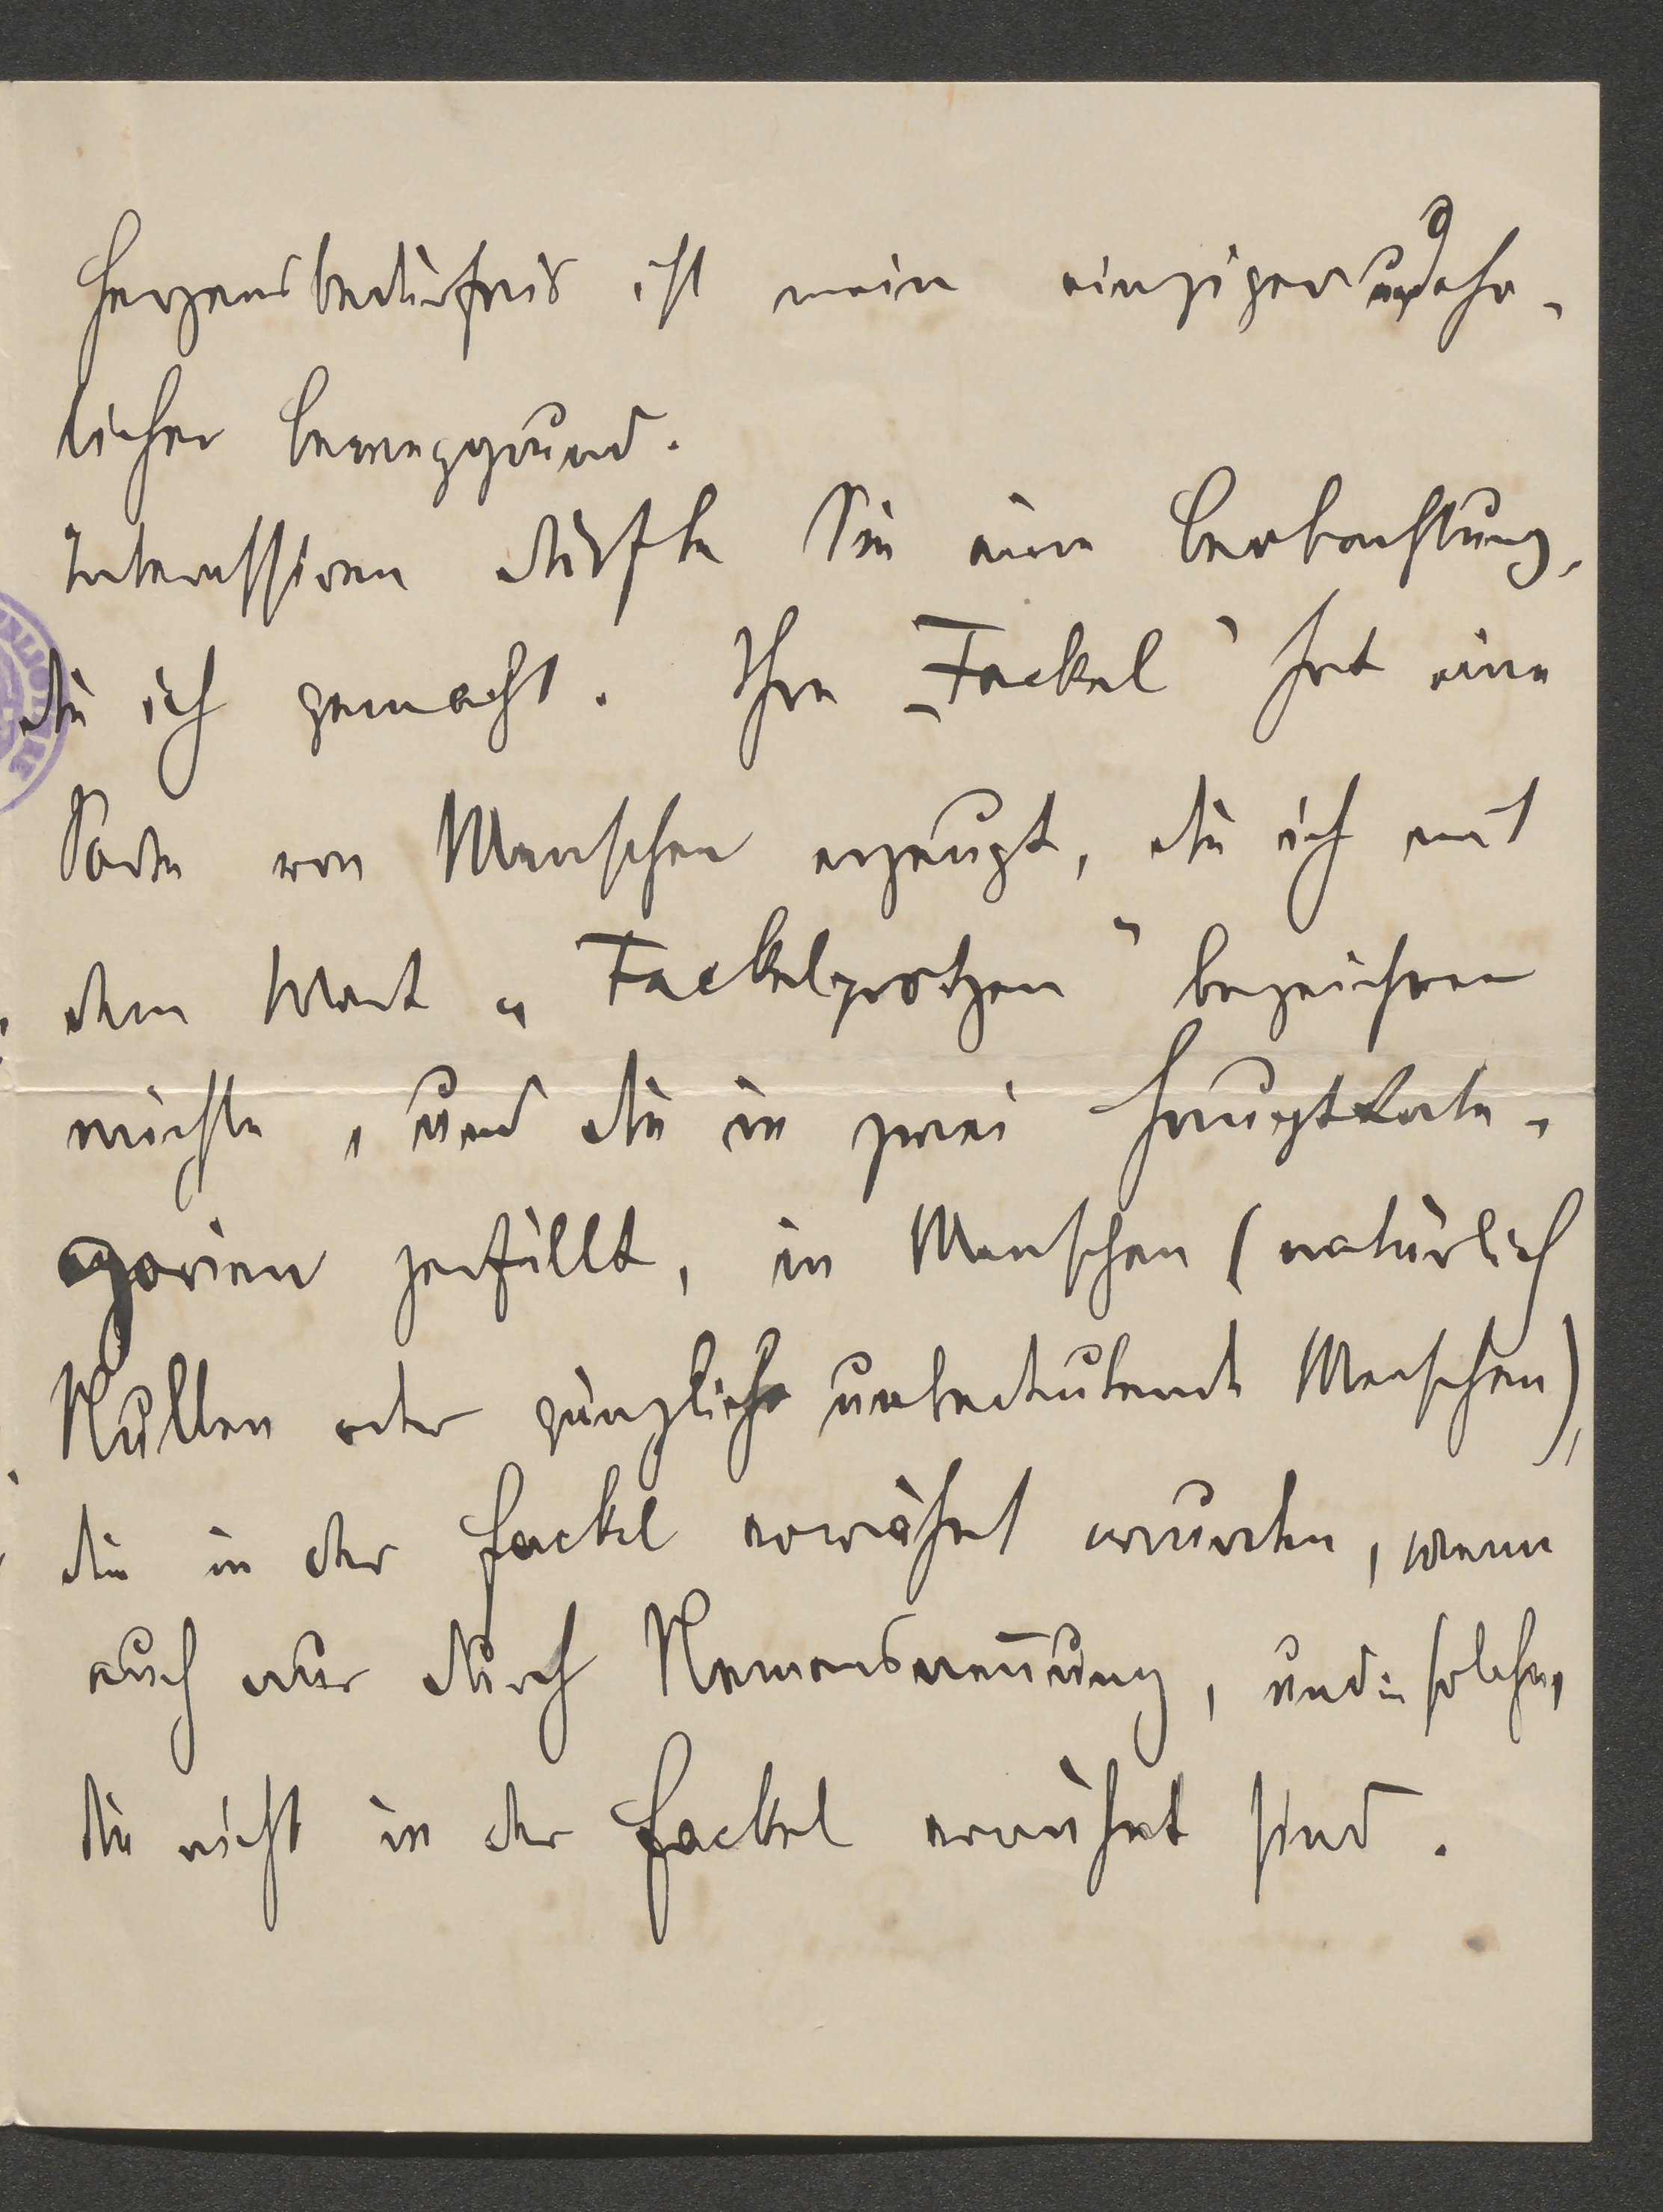 Herzensbedürfnis ist mein einziger und ehr-
licher Beweggrund.
Interessiren dürfte Sie eine Beobachtung,
die ich gemacht. Ihre „Fackel“ hat eine
Sorte von Menschen erzeugt, die ich mit
dem Wort „Fackelprotzen“ bezeichnen
möchte, und die in zwei Hauptkate-
gorien zerfällt, in Menschen (natürlich
Nullen oder gänzlich unbedeutende Menschen),
die in der Fackel erwähnt wurden, wenn
auch nur durch Namensnennung, und in solche,
die nicht in der Fackel erwähnt sind.